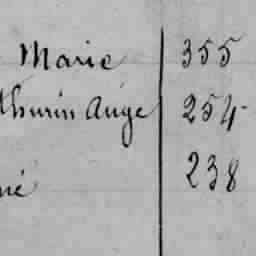 Marie 355
thurin Ange 254
né 238